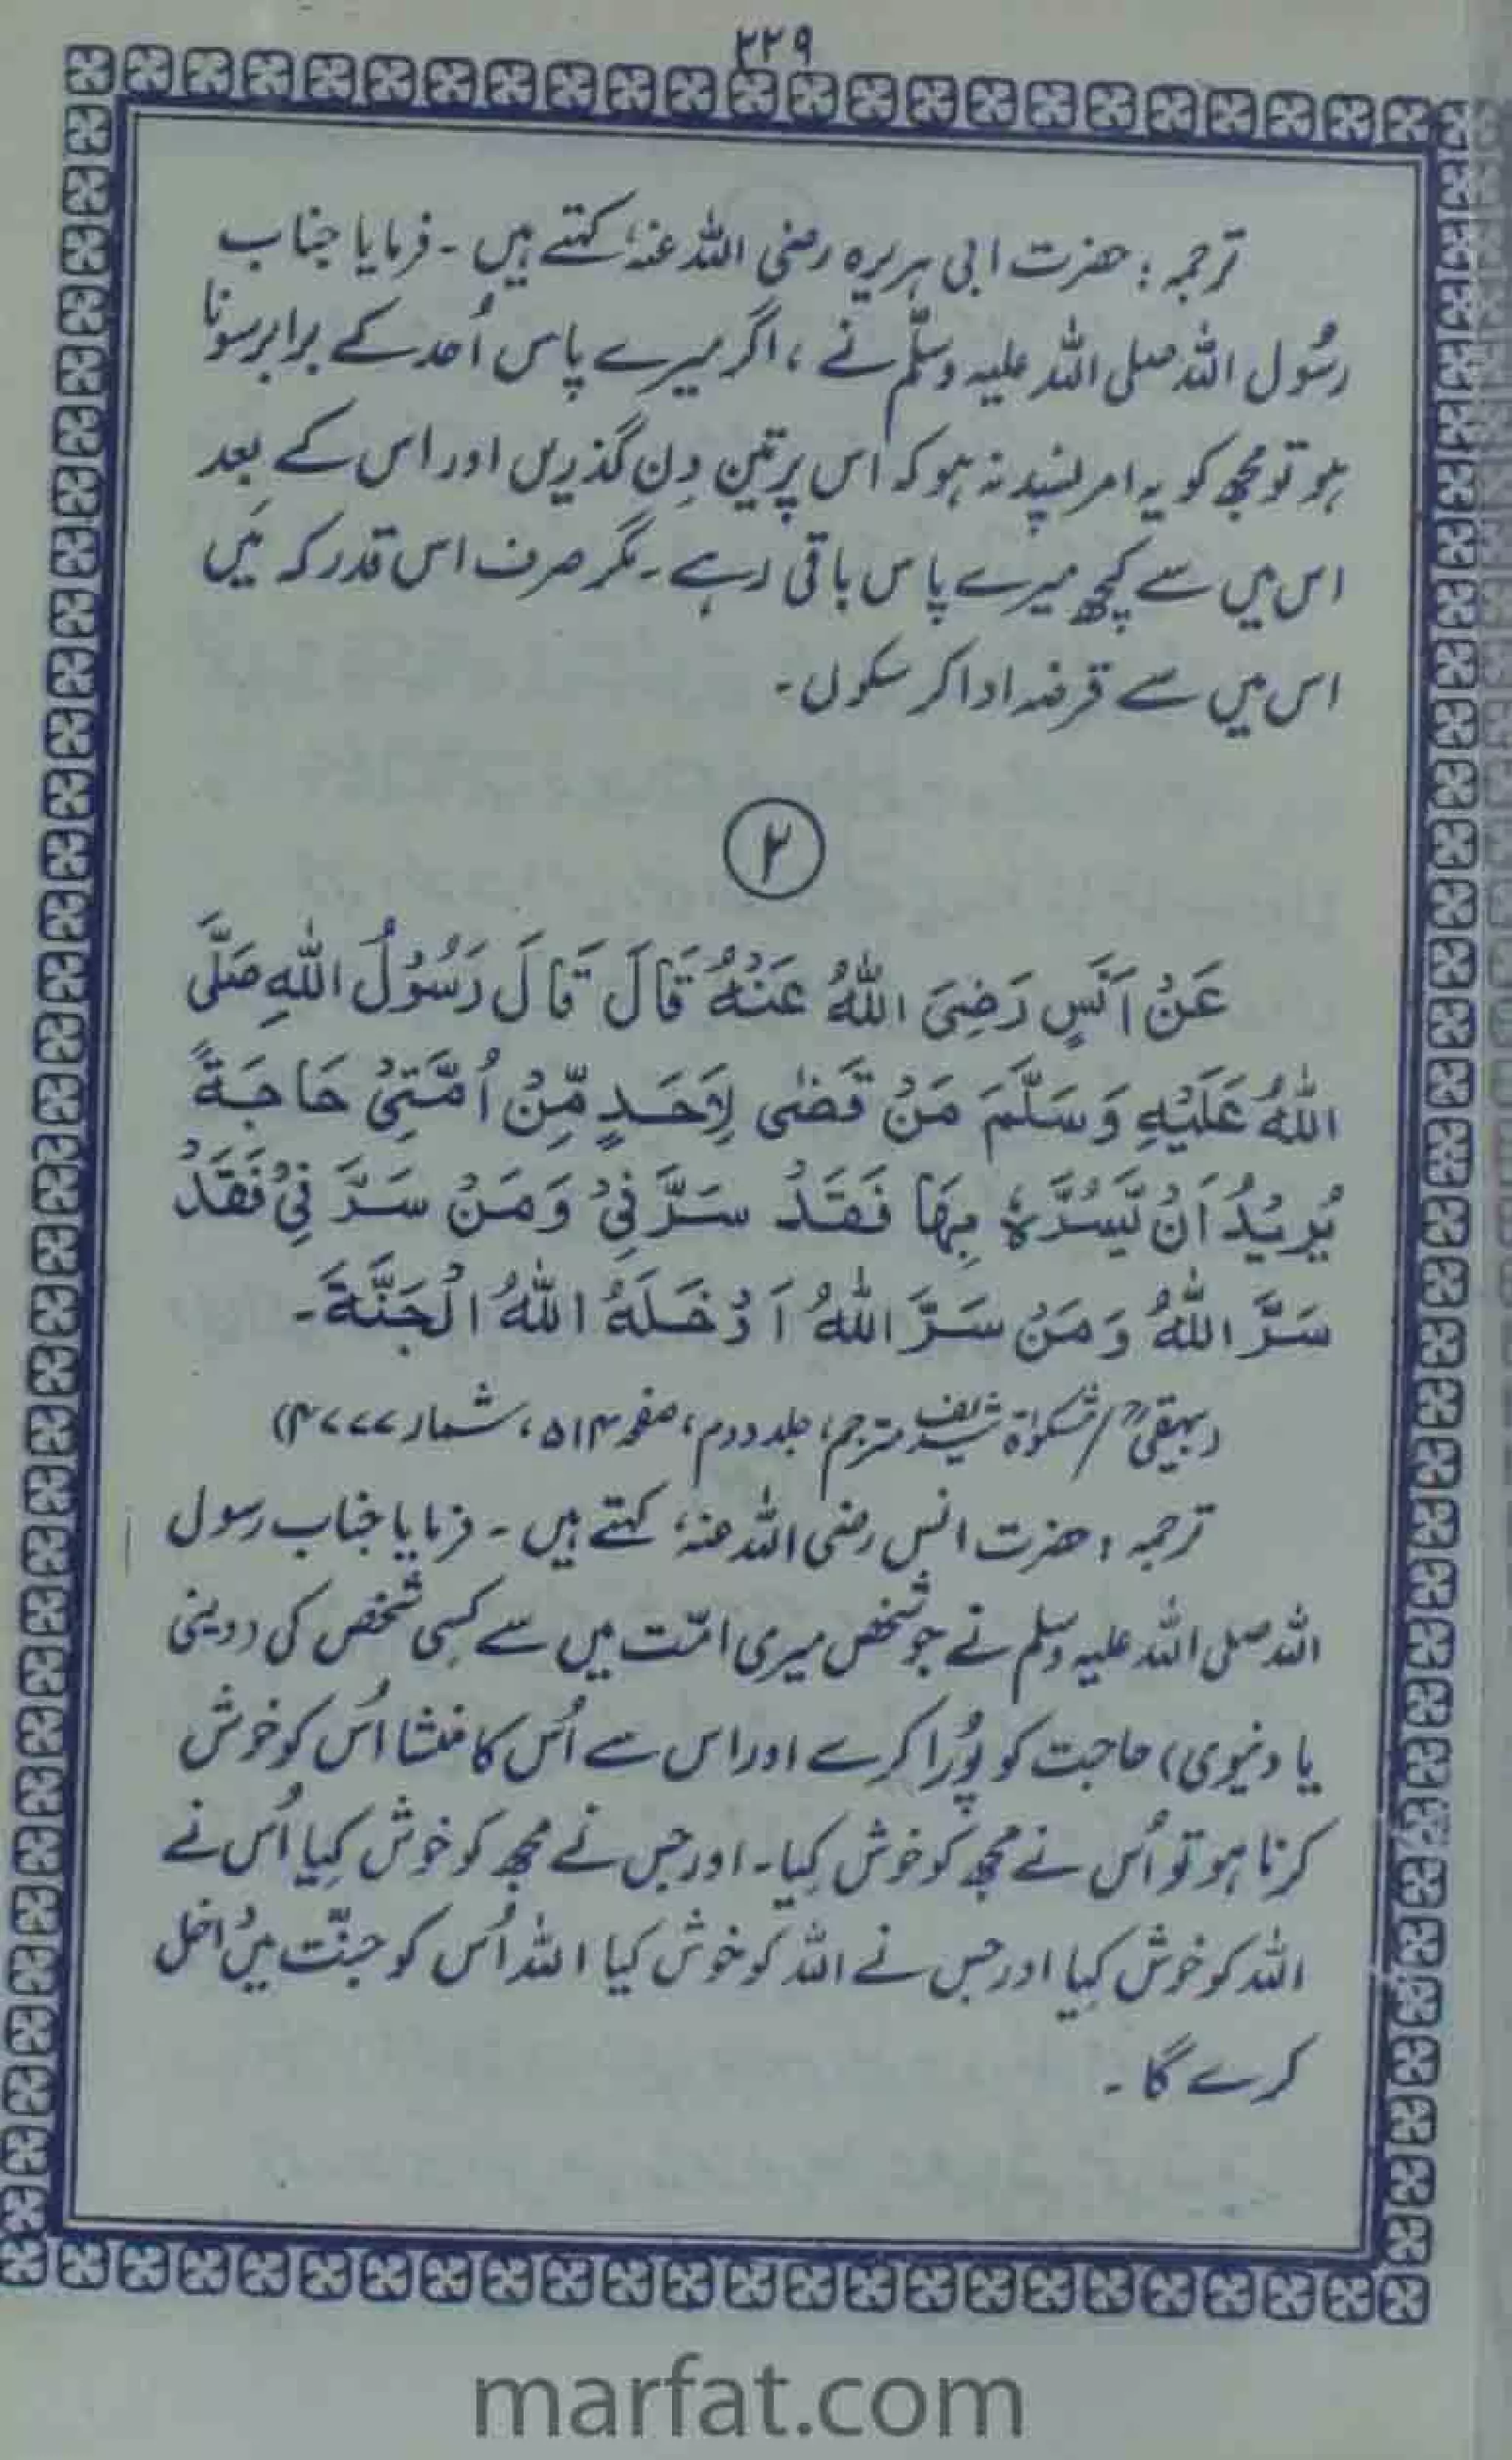 ۲۲۹
ترجمہ : حضرت ابی ہریرہ رضی اللہ عنہٗ کہتے ہیں ۔ فرمایا جناب
رسُول اللہ صلی اللہ علیہ وسلّم نے ، اگر میرے پاس اُحد کے برابر سونا
ہو تو مجھ کو یہ امر پسند نہ ہو کہ اس پر تین دِن گذریں اور اس کے بعد
اس میں سے کچھ میرے پاس باقی رہے ۔ مگر صرف اس قدر کہ مَیں
اس میں سے قرضہ ادا کر سکوں ۔
۲
عَنْ اَنَسٍ رَضِیَ اللّٰہُ عَنْہُ قَالَ قَالَ رَسُوْلُ اللّٰہِ صَلَّی
اللّٰہُ عَلَیْہِ وَسَلَّمَ مَنْ قَضٰی لِاَحَدٍ مِّنْ اُمَّتِیْ حَاجَۃً
یُرِیْدُ اَنْ یَّسُرَّہٗ بِھَا فَقَدْ سَرَّنِیْ وَمَنْ سَرَّنِیْ فَقَدْ
سَرَّ اللّٰہُ وَمَنْ سَرَّ اللّٰہُ اَدْخَلَہُ اللّٰہُ الْجَنَّۃَ ۔
(بیہقیؒ / مشکوٰۃ شریف مترجم، جلد دوم، صفحہ ۵۱۴، شمار ۴۷۷۷)
ترجمہ : حضرت انس رضی اللہ عنہٗ کہتے ہیں ۔ فرمایا جناب رسول
اللہ صلی اللہ علیہ وسلم نے جو شخص میری امّت میں سے کسِی شخص کی (دینی
یا دنیوی) حاجت کو پُورا کرے اور اس سے اُس کا منشا اُس کو خوش
کرنا ہو تو اُس نے مجھ کو خوش کِیا ۔ اور جس نے مجھ کو خوش کِیا اُس نے
اللہ کو خوش کِیا اور جس نے اللہ کو خوش کیا اللہ اُس کو جنّت میں داخل
کرے گا ۔
marfat.com